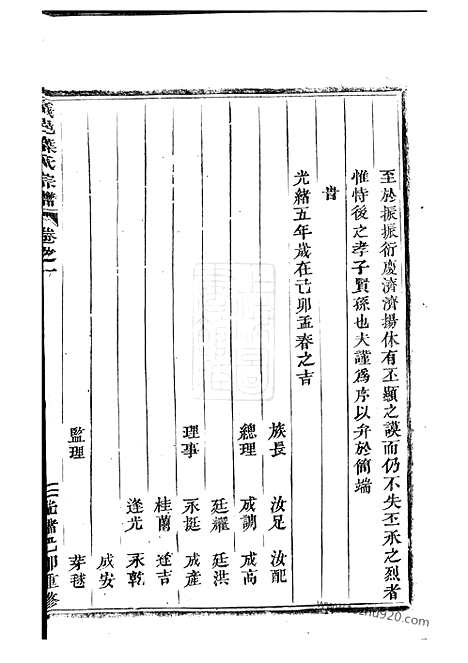 至於振振衍慶濟濟揚休有丕顯之謨而仍不失丕承之烈者
惟恃後之孝子賢孫也夫謹爲序以弁於簡端
旹
光緒五年歲在己卯孟春之吉
族長 汝足 汝配
總理 成調 成高
廷耀 廷洪
理事 永挺 成產
桂蘭 逢吉
逢光 永乾
成安
監理 芽毯
義邑葉氏宗譜 卷之一 光緒己卯重修